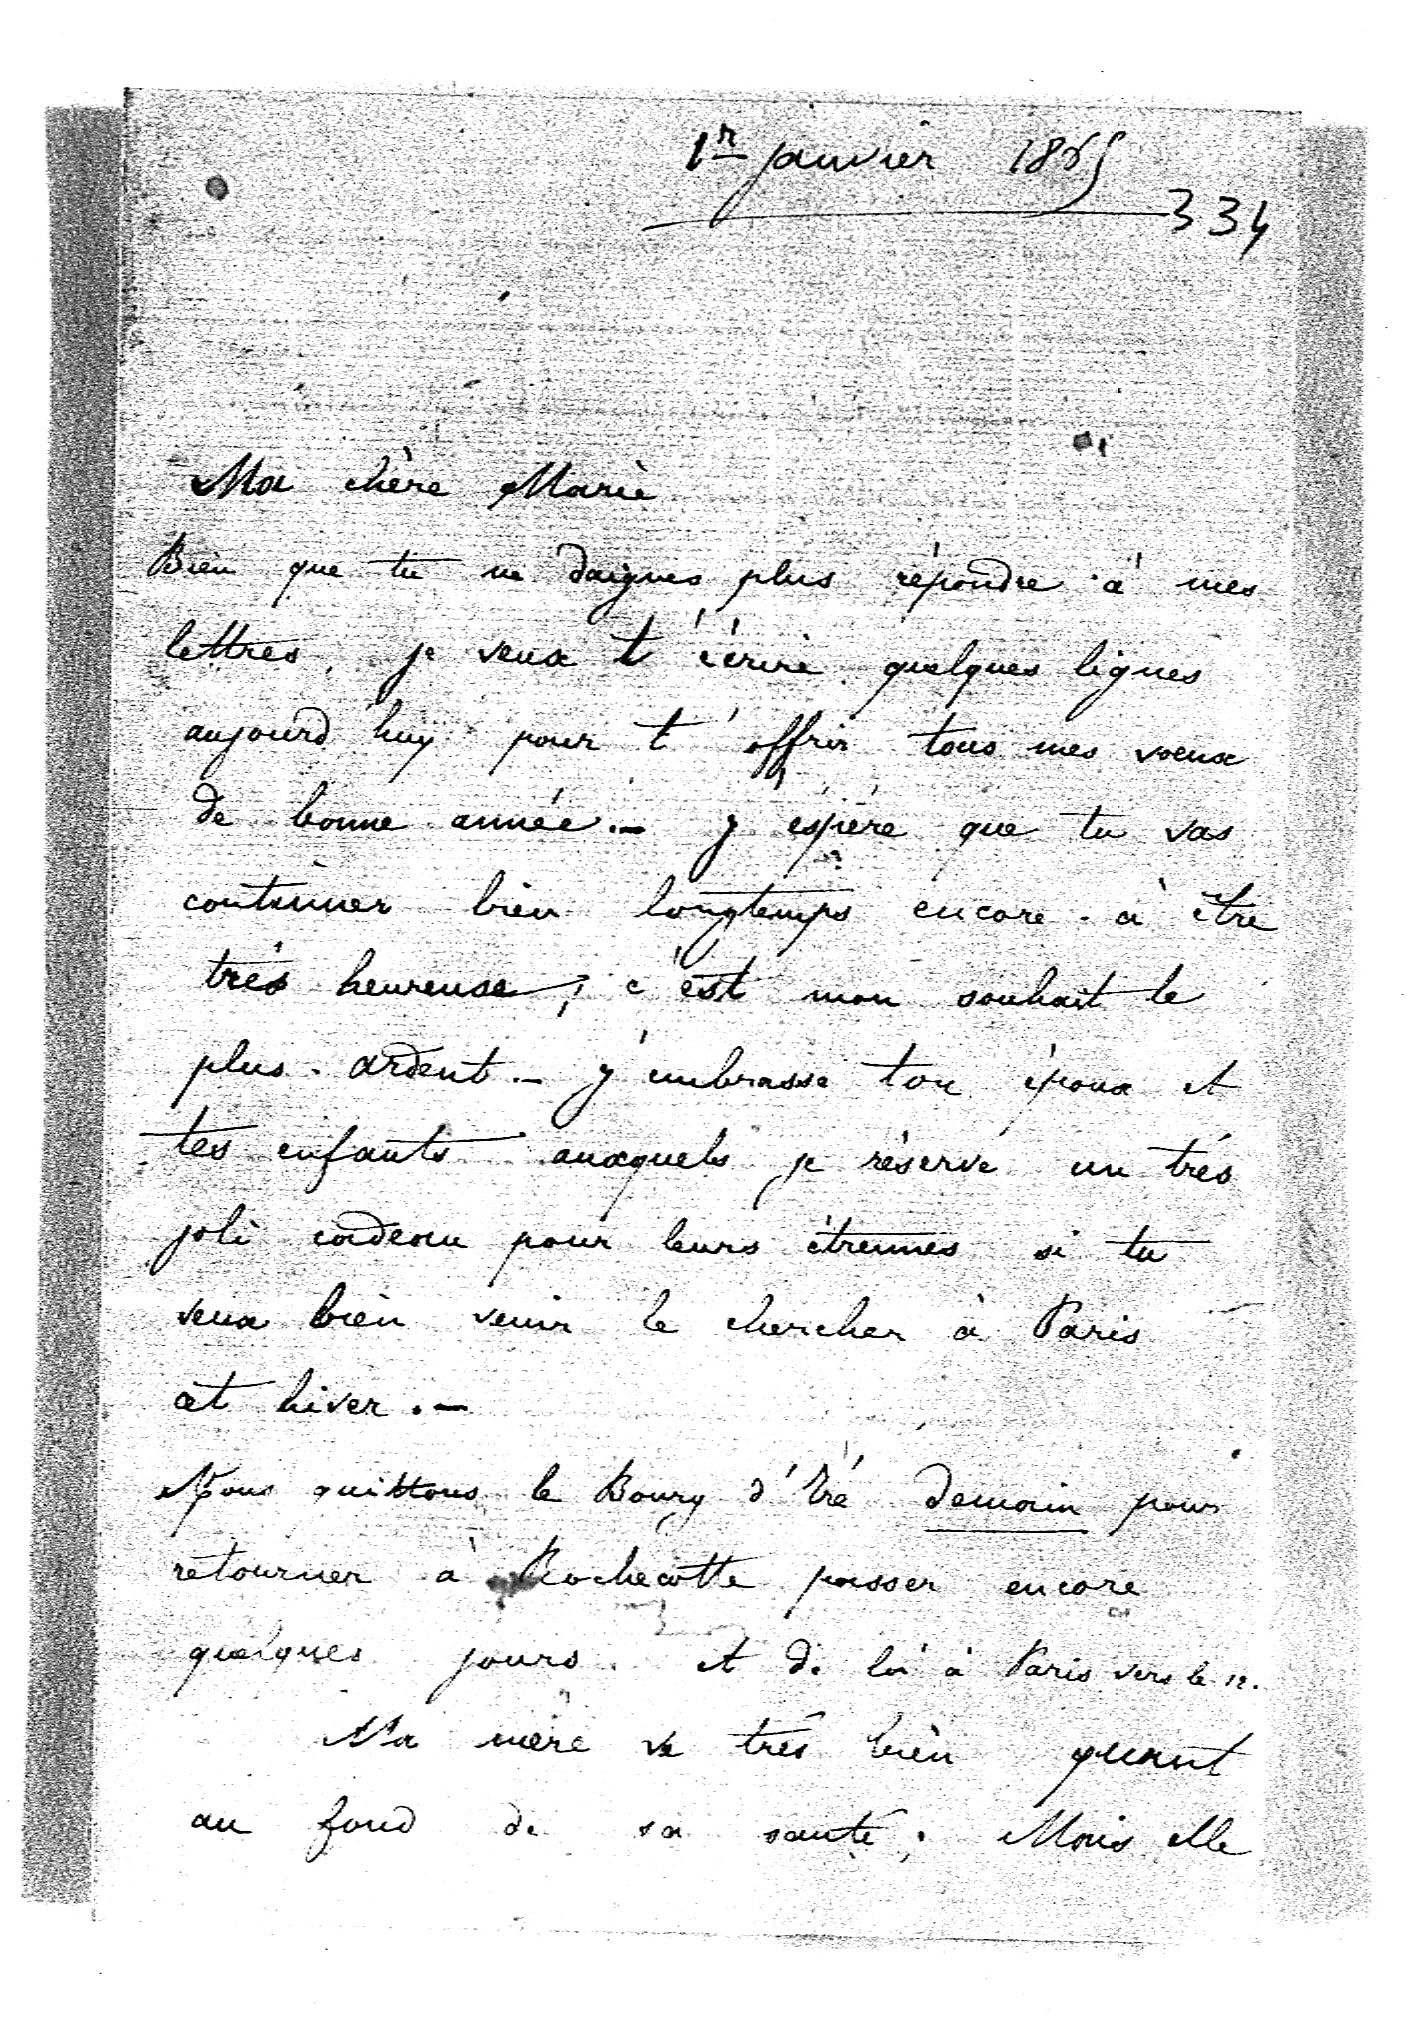 1r janvier 1865
334
Ma chère Marie
Bien que tu ne daignes plus répondre à mes
lettres, je veux t'écrire quelques lignes
aujourd'huy pour t'offrir tous mes voeux
de bonne année. — j'espère que tu vas
continuer bien longtemps encore à être
très heureuse ; c'est mon souhait le
plus ardent. — j'embrasse ton époux et
tes enfants auxquels je réserve un très
joli cadeau pour leurs étrennes si tu
veux bien venir le chercher à Paris
cet hiver. —
Nous quittons le Bourg d'Iré demain pour
retourner à Rochecotte passer encore
quelques jours. et de là à Paris vers le 12.
Ma mère va très bien quant
au fond de sa santé. Mais elle